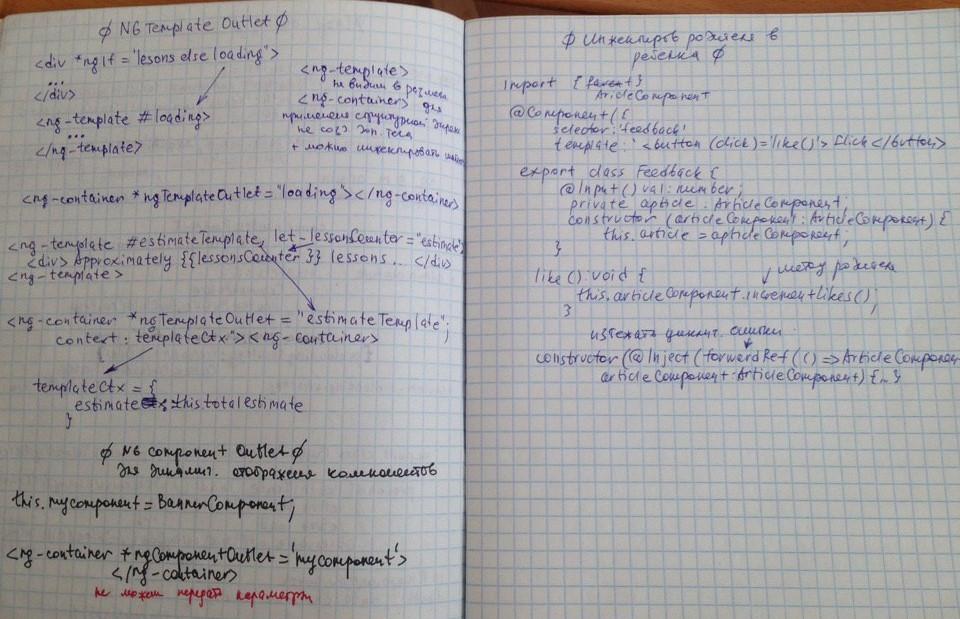 ∅ NG Template Outlet ∅
<div *ngIf = "lesons else loading">
...
</div>
<ng-template # loading>
...
</ng-template>
<ng-template>
не видим в
<ng-container> для
не созд. доп. тега
+ можно инжектировать
<ng-container *ngTemplateOutlet = "loading"></ng-container>
<ng-template #estimateTemplate, let-lessonsCounter = "estimate"
<div> Approximately {{lessonsCounter }} lessons .. </div>
<ng-template >
<ng-container *ngTemplateOutlet = "estimateTemplate";
context: templateCtx "><ng-container>
templateCtx = {
estimate : this.totalestimate
}
∅ NG component Outlet ∅
для динамич. отображения компонентов
this.mycomponent = BannerComponent;
<ng-container *ngComponentOutlet = 'mycomponent'>
</ng-container>
не можем передать параметры
∅ Инжектиров родителя в
ребенка ∅
import { }
AricleComponent
@Component ({
selector: 'feedback'
template: '<button (click)='like()'> Click </button>
export class Feedback {
@Input () val: number;
private article : ArticleComponent;
constructor (articleComponent : ArticleComponent) {
this.article = articleComponent;
}
like () : void {
метод родителя
this.articleComponent.incrementLikes();
}
избежать циклич. ошибки
constructor (@Inject (forwardRef (() => ArticleComponen
articleComponent: ArticleComponent) {..}